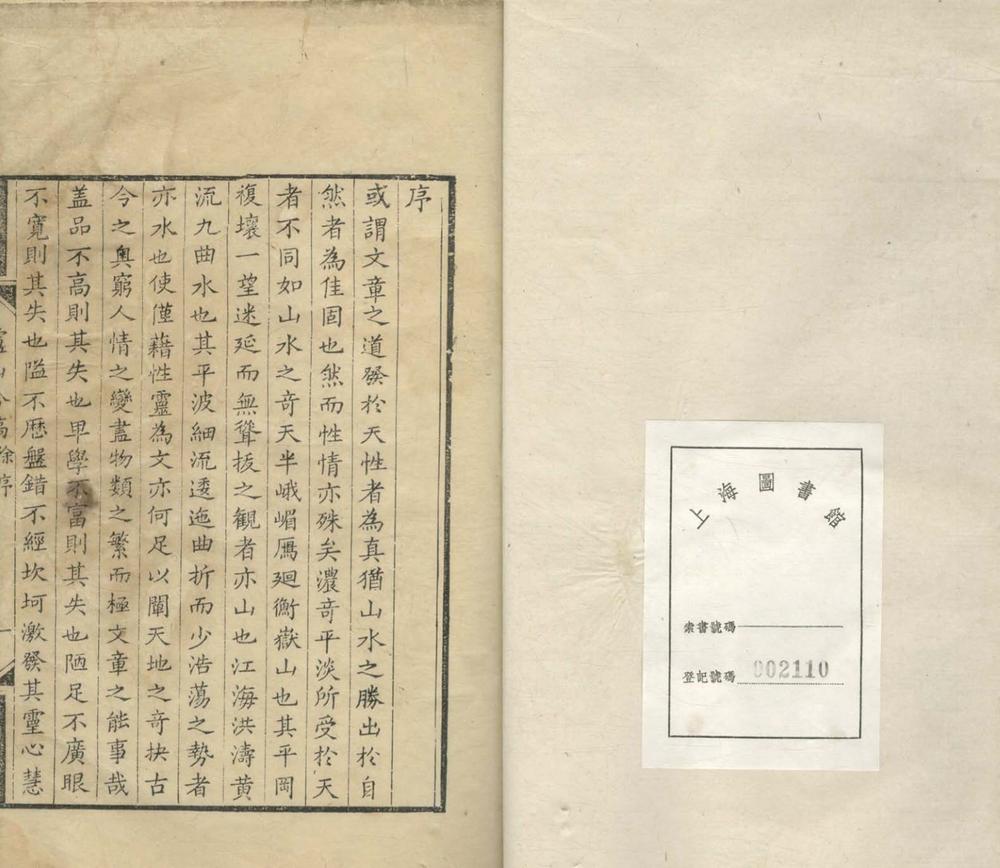 上海圖書館
索書號碼
登記號碼 002110
序
或謂文章之道發於天性者為真猶山水之勝出於自
然者為佳固也然而性情亦殊矣濃竒平淡所受於天
者不同如山水之竒天半峨嵋鴈廻衡嶽山也其平岡
複壤一望迷延而無聳拔之観者亦山也江海洪濤黃
流九曲水也其平波細流逶迤曲折而少浩蕩之勢者
亦水也使僅藉性靈為文亦何足以闡天地之竒抉古
今之奧窮人情之變盡物類之繁而極文章之能事哉
盖品不高則其失也卑學不富則其失也陋足不廣眼
不寬則其失也隘不歴盤錯不經坎坷激發其靈心慧